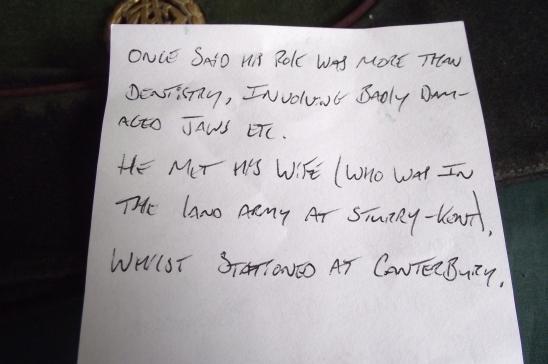 ONCE SAID HIS ROLE WAS MORE THAN
DENTISTRY, INVOLVING BADLY DAM-
AGED JAWS ETC.
HE MET HIS WIFE (WHO WAS IN
THE LAND ARMY AT STURRY-KENT),
WHILST STATIONED AT CANTERBURY.